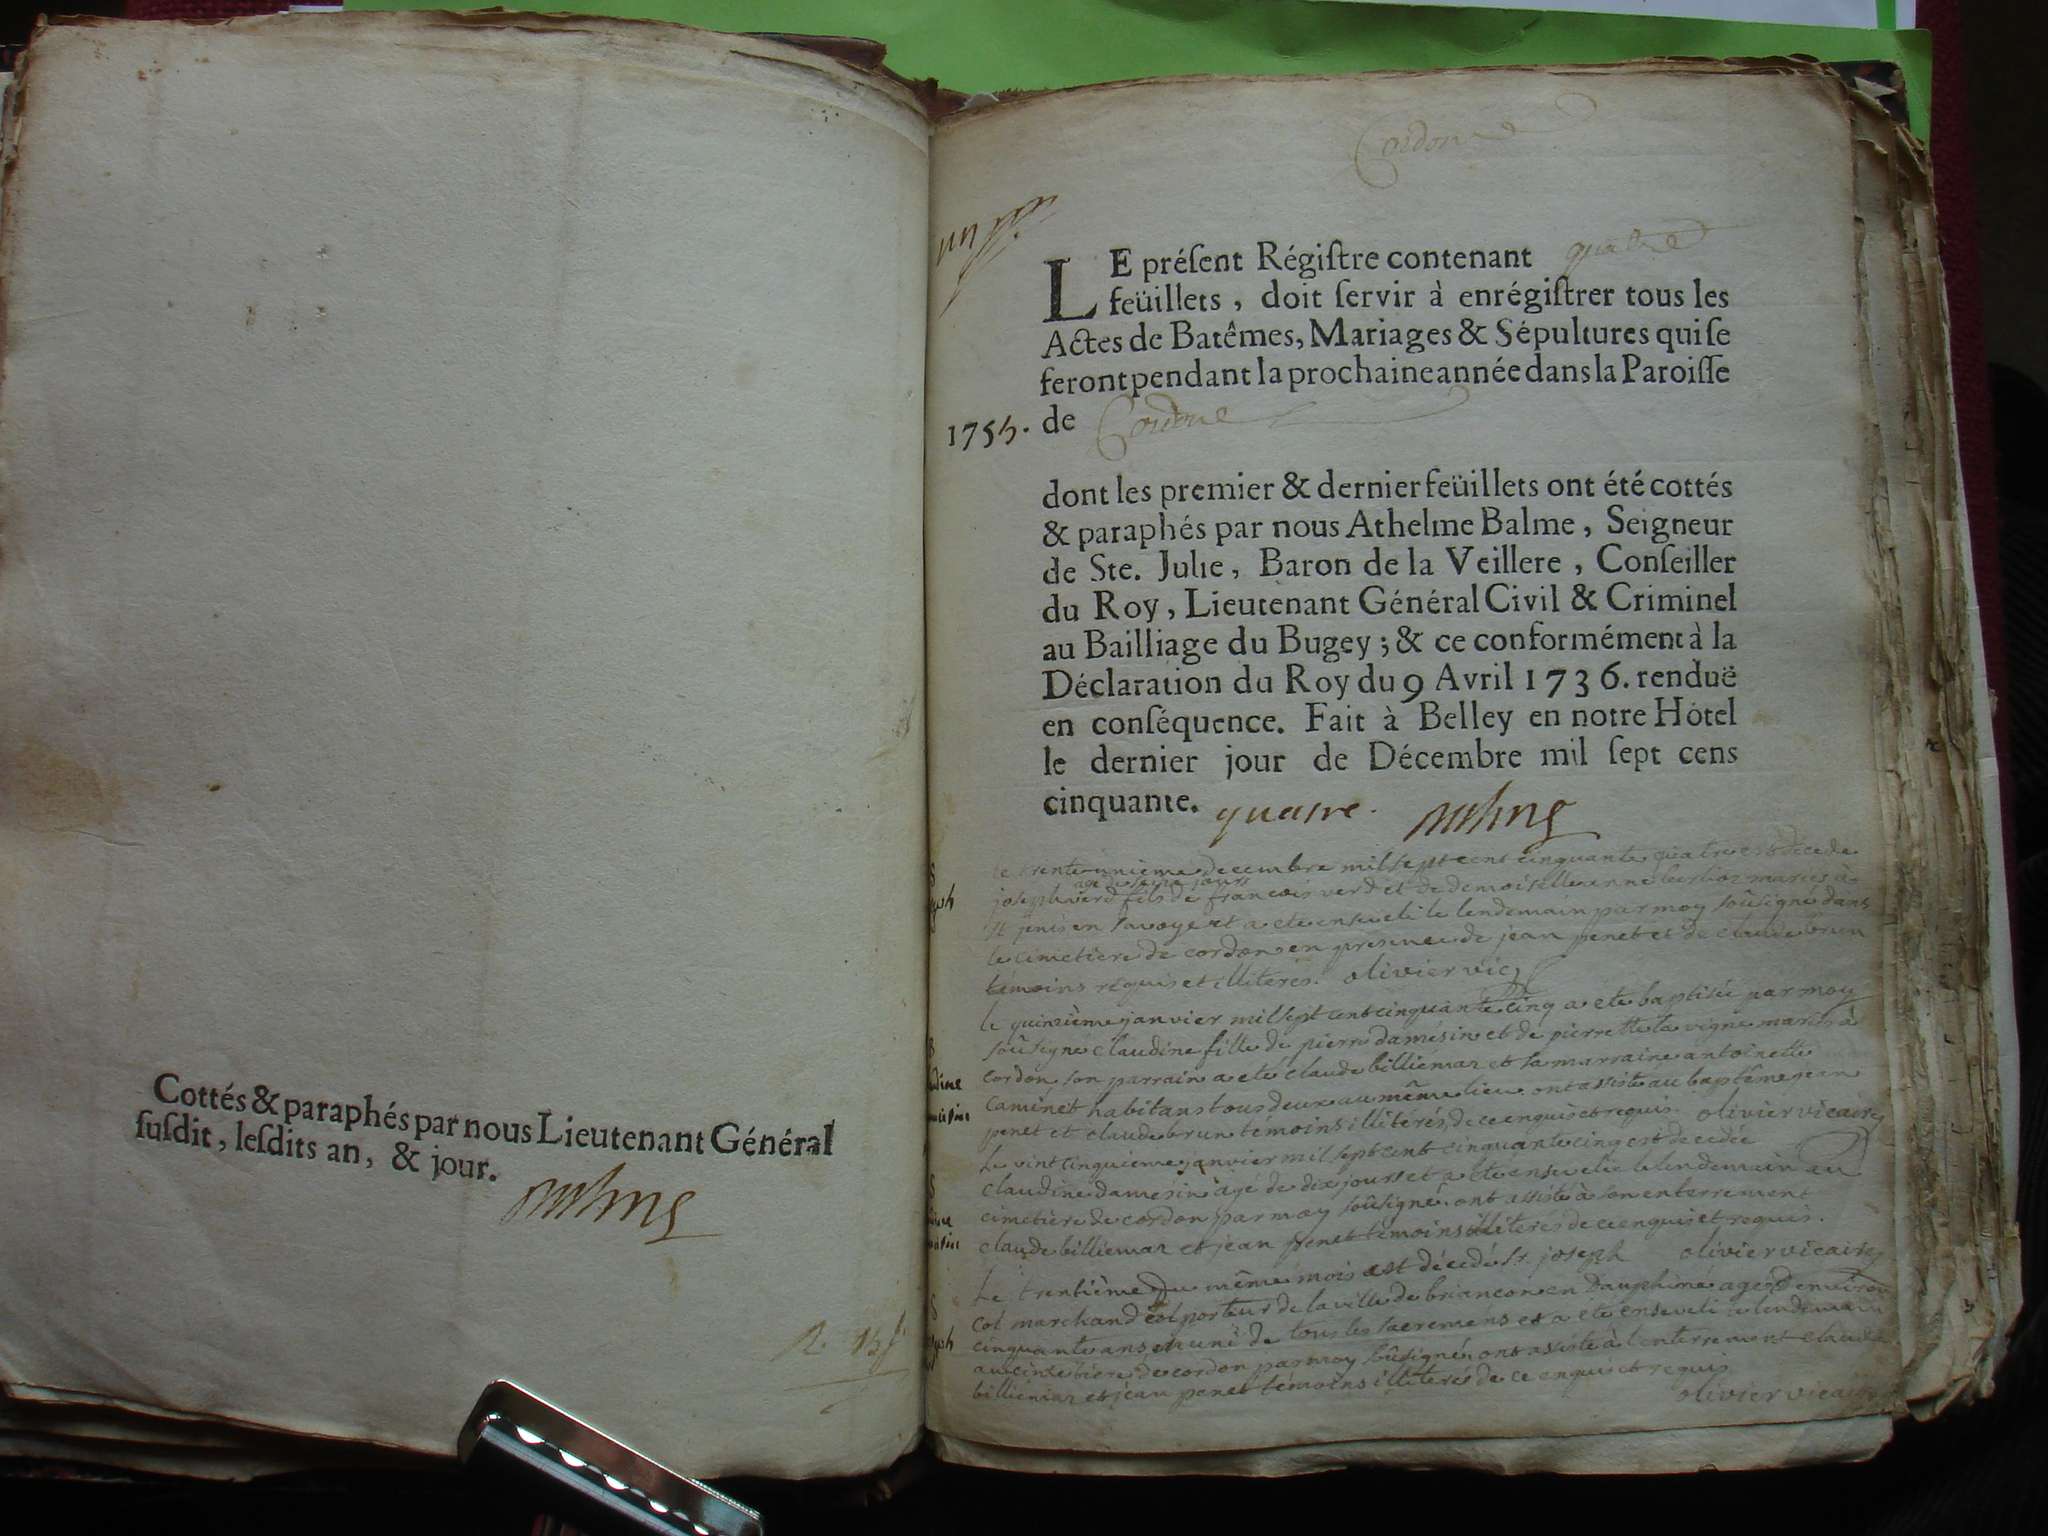 Cottés & paraphés par nous Lieutenant Général
ſuſdit, leſdits an, & jour.
Cordon
LE préſent Régiſtre contenant quatre
feüillets, doit ſervir à enrégiſtrer tous les
Actes de Batêmes, Mariages & Sépultures qui ſe
feront pendant la prochaine année dans la Paroiſſe
1755. de Cordon
dont les premier & dernier feüillets ont été cottés
& paraphés par nous Athelme Balme, Seigneur
de Ste. Julie, Baron de la Veillere, Conſeiller
du Roy, Lieutenant Général Civil & Criminel
au Bailliage du Bugey; & ce conformément à la
Déclaration du Roy du 9 Avril 1736. renduë
en conſéquence. Fait à Belley en notre Hôtel
le dernier jour de Décembre mil ſept cens
cinquante. quatre.
le trente unieme decembre mil sept cent cinquante quatre est decede
joseph verd fils de francois verd et de demoiselle anne maries a
en savoye et a ete enseveli le lendemain par moy soûsigné dans
le cimetiere de cordon en presence de jean penet et de claude brun
témoins requis et illiterés. olivier vic
le quinzième janvier mil sept cent cinquante cinq a ete baptisée par moy
soûsigné claudine fille de pierre damésin et de pierrette la vigne mariés à
cordon son parrain a eté claude billiemaz et sa marraine antoinette
caminet habitans tous deux au même lieu ont assisté au baptême jean
penet et claude brun témoins illiterés de ce enquis et requis. olivier vicaire
Le vint cinquieme janvier mil sept cent cinquante cinq est decedée
claudine damésin agé de dix jours et a eté ensevelie le lendemain au
cimetiere de cordon par moy soûsigné. ont assisté à son enterrement
claude billiemaz et jean penet témoins illiterés de ce enquis et requis.
olivier vicaire
Le trentième du même mois est décédé Sr. joseph
col marchand colporteur de la ville de briancon en Dauphiné agé d'environ
cinquante ans muni de tous les sacremens et a ete enseveli le lendemain
au cimetiere de cordon par moy soûsigné ont assisté à l'enterrement claude
billiemaz et jean penet témoins illiterés de ce enquis et requis
olivier vicaire